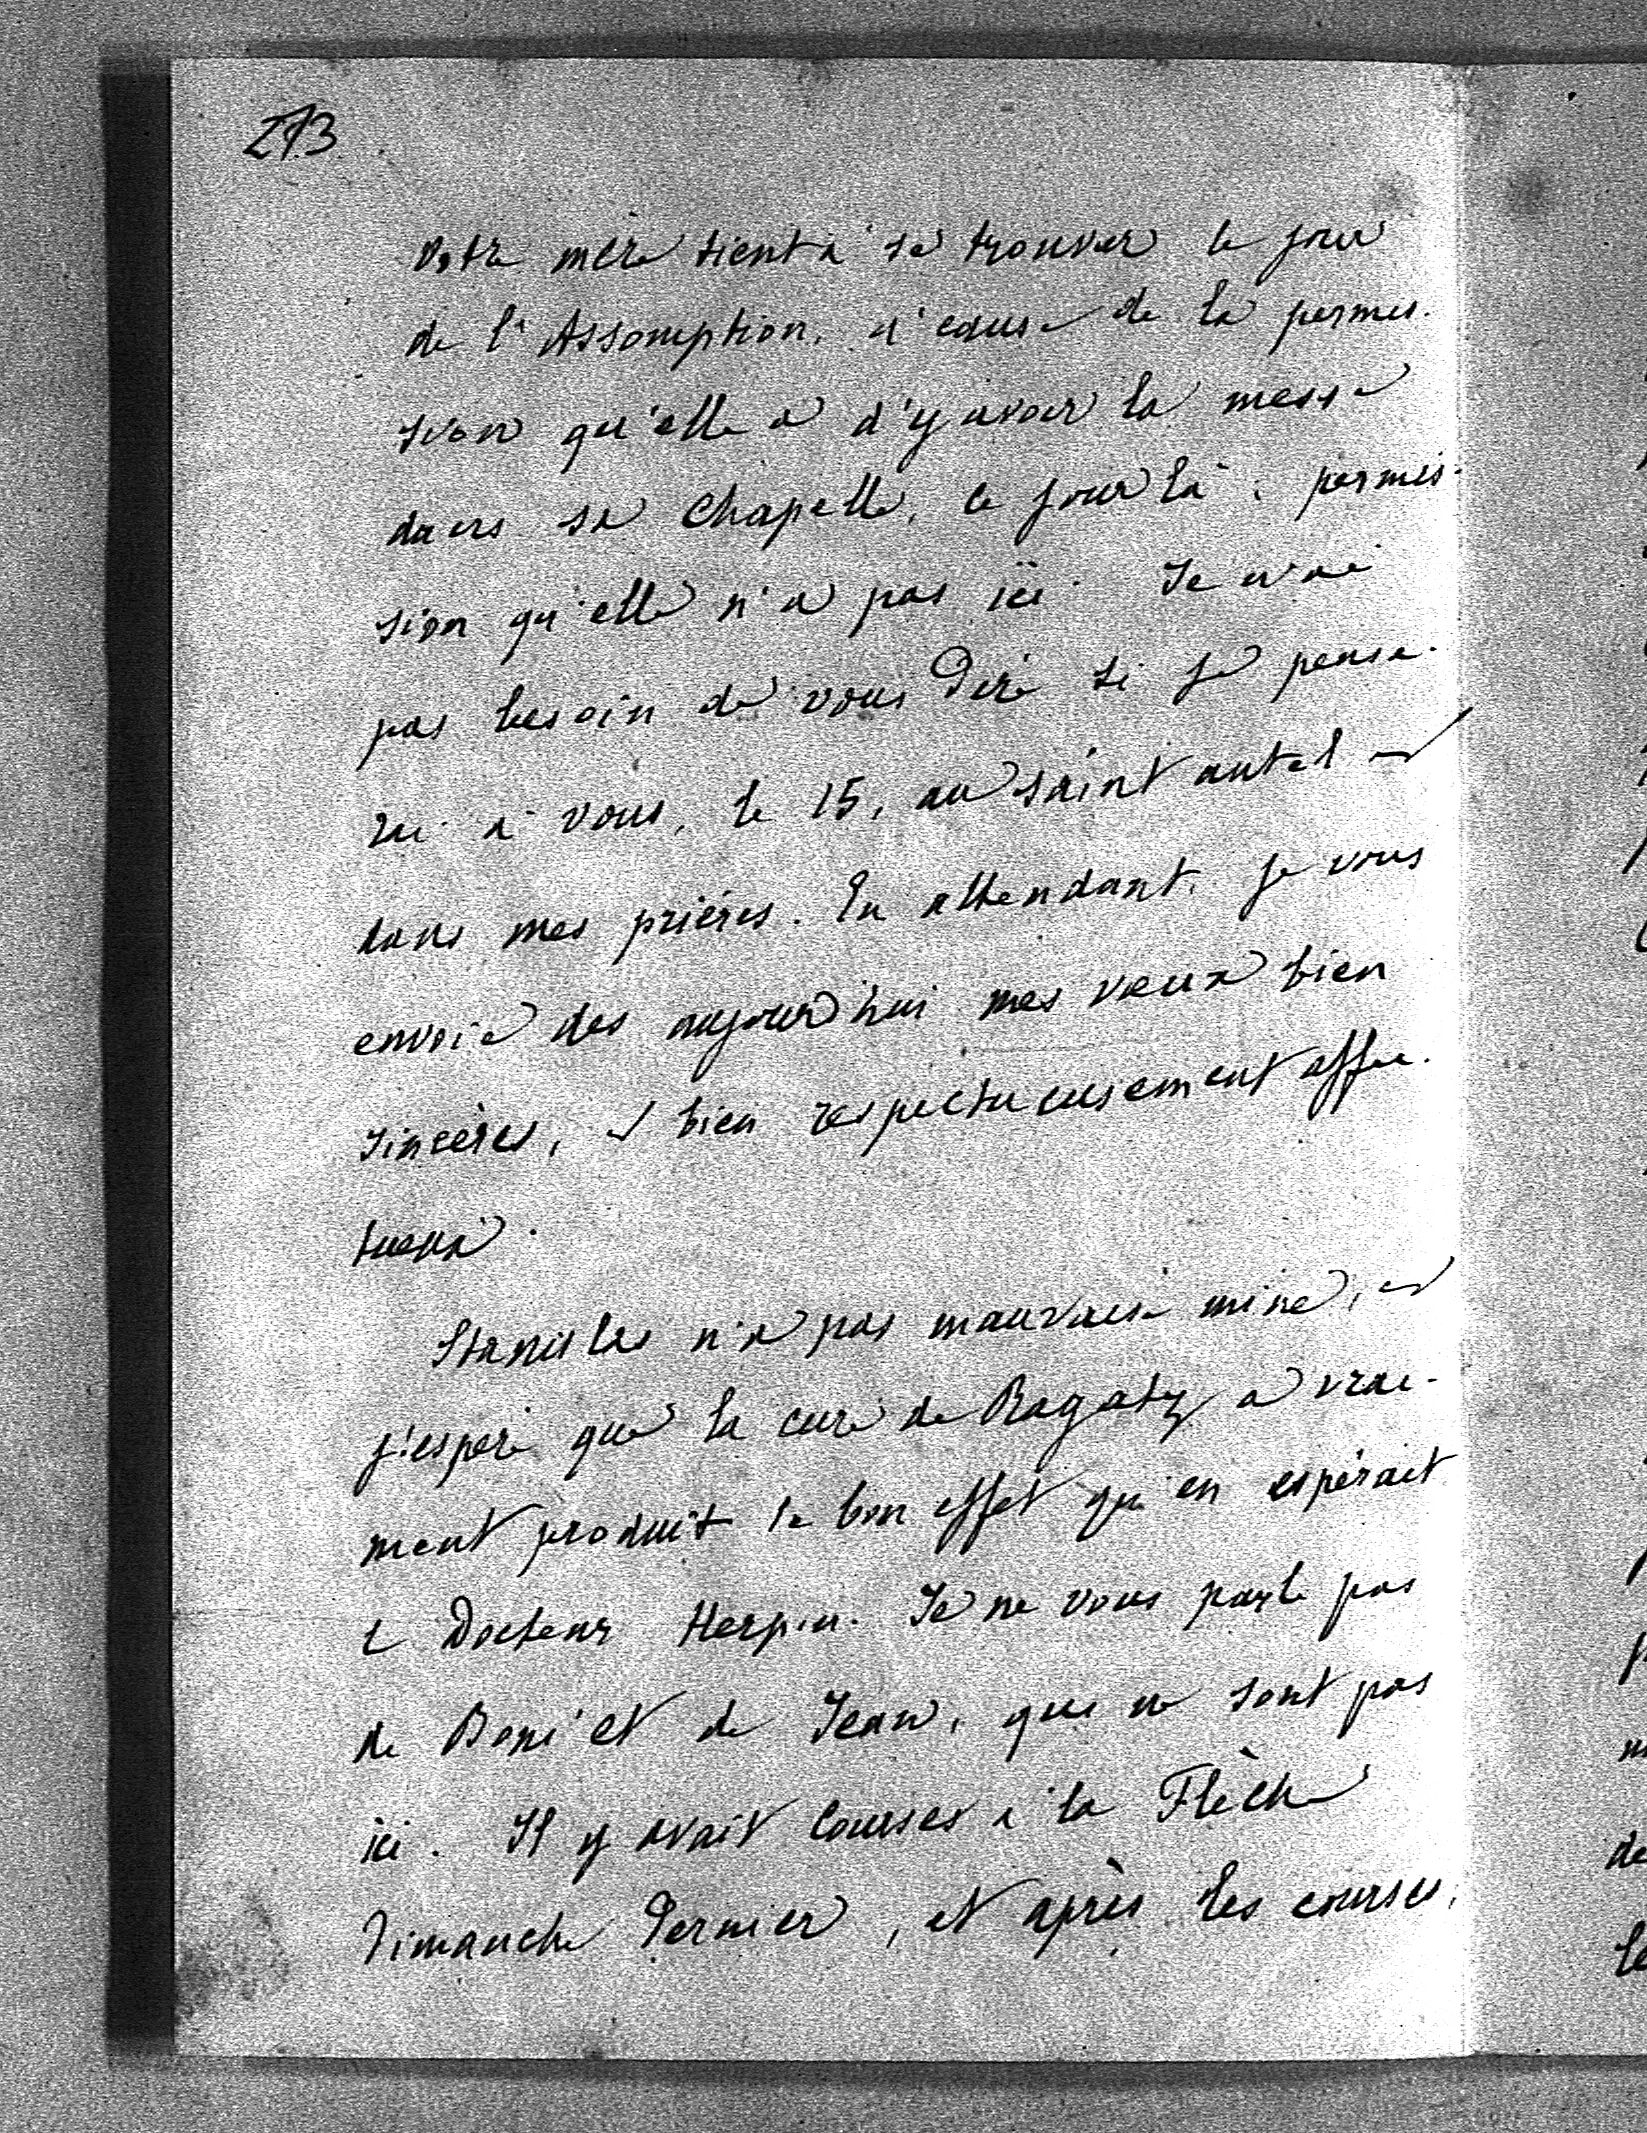 273
votre mère tient à se trouver le jour
de l'Assomption, à cause de la permis-
sion qu'elle a d'y avoir la messe
dans sa Chapelle, ce jour là, permis-
sion qu'elle n'a pas ici. Je n'ai
pas besoin de vous dire si je pense-
rai à vous, le 15, au saint autel et
dans mes prières. En attendant, je vous
envoie des aujourd'hui mes vœux bien
sincères, et bien respectueusement affec-
tueux.
Stanislas n'a pas mauvaise mine, et
j'espère que la cure de Ragatz a vrai-
ment produit le bon effet qu'en espérait
le Docteur Herpin. Je ne vous parle pas
de Boni et de Jean, qui ne sont pas
ici. Il y avait Courses à la Flèche
Dimanche dernier, et après les courses,